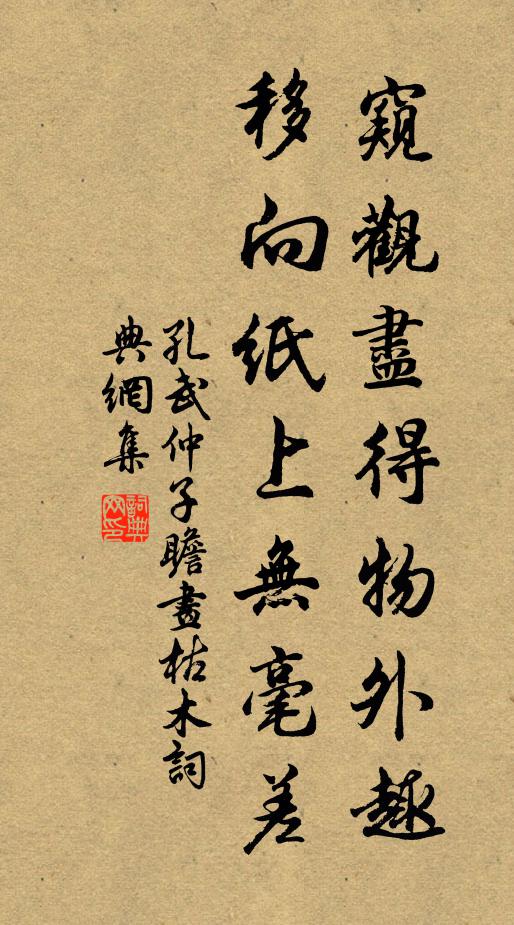 窺觀盡得物外趣
移向紙上無毫差
孔武仲子瞻畫枯木詞
典網集
詞典網印